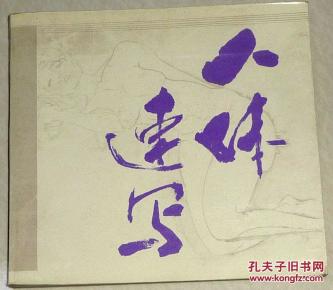 人体
速写
孔夫子旧书网
www.kongfz.com